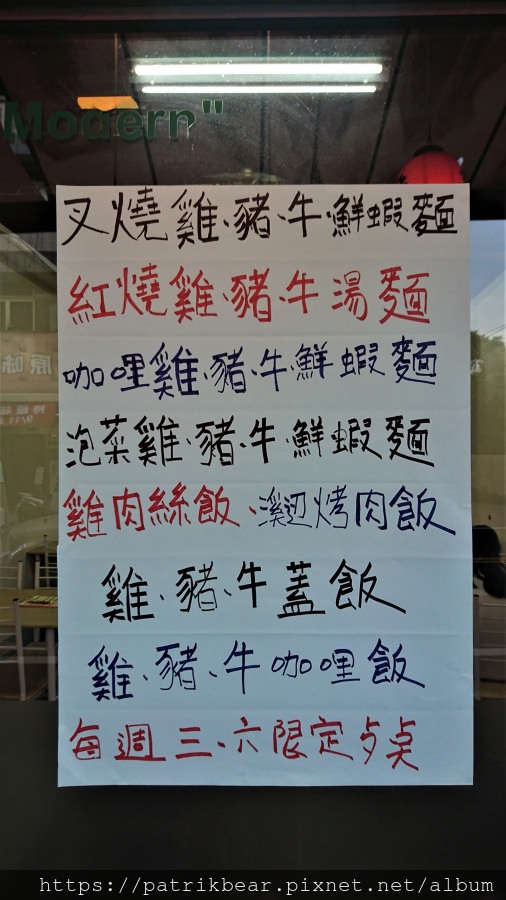 Modern"
叉燒雞、豬、牛、鮮蝦麵
紅燒雞、豬、牛湯麵
咖哩雞、豬、牛、鮮蝦麵
泡菜雞、豬、牛、鮮蝦麵
雞肉絲飯、溪辺烤肉飯
雞、豬、牛蓋飯
雞、豬、牛咖哩飯
每週三、六限定
原味
https://patrikbear.pixnet.net/album